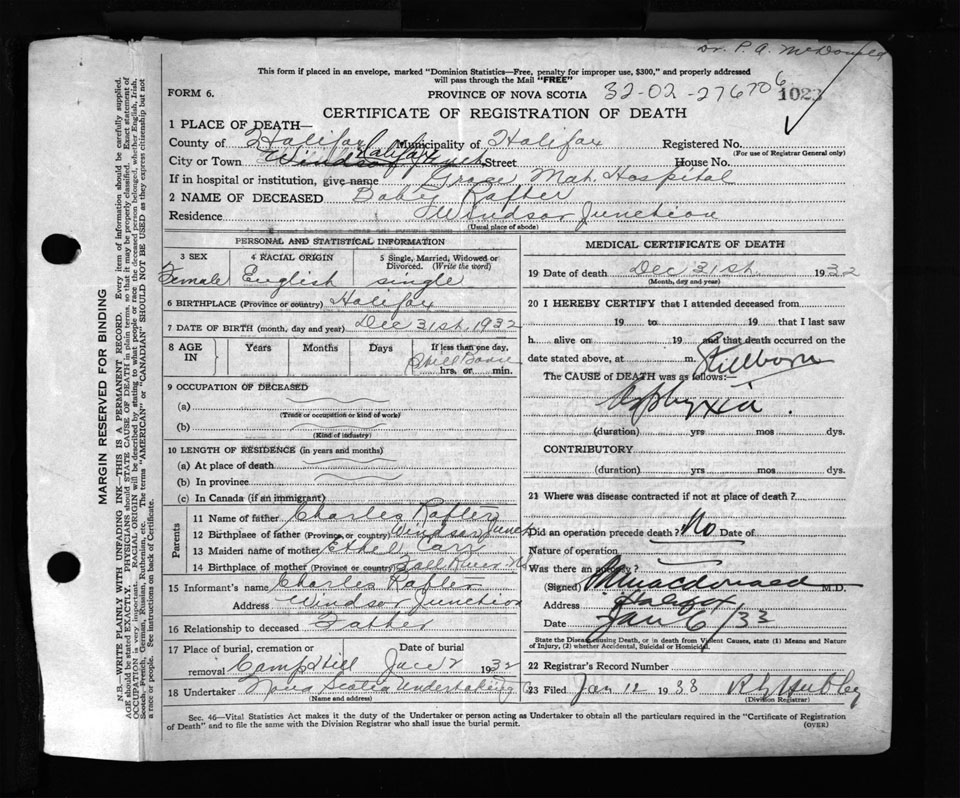 Dr. P. A. McDonald
This form if placed in an envelope, marked "Dominion Statistics—Free, penalty for improper use, $300," and properly addressed
will pass through the Mail "FREE"
FORM 6.
PROVINCE OF NOVA SCOTIA 32-02-276706 1023
CERTIFICATE OF REGISTRATION OF DEATH
1 PLACE OF DEATH—
County of Halifax Municipality of Halifax Registered No.
(For use of Registrar General only)
City or Town Windsor Junc Halifax Street House No.
If in hospital or institution, give name Grace Mat. Hospital
2 NAME OF DECEASED Baby Rafter
Residence Windsor Junction
(Usual place of abode)
PERSONAL AND STATISTICAL INFORMATION
3 SEX 4 RACIAL ORIGIN 5 Single, Married, Widowed or Divorced. (Write the word)
Female English single
6 BIRTHPLACE (Province or country) Halifax
7 DATE OF BIRTH (month, day and year) Dec 31st, 1932
8 AGE IN Years Months Days If less than one day,
hrs. or min.
9 OCCUPATION OF DECEASED
(a)
(Trade or occupation or kind of work)
(b)
(Kind of industry)
10 LENGTH OF RESIDENCE (in years and months)
(a) At place of death
(b) In province
(c) In Canada (if an immigrant)
Parents
11 Name of father Charles Rafter
12 Birthplace of father (Province or country) Windsor Junct
13 Maiden name of mother Ethel Carr
14 Birthplace of mother (Province or country) Fall River NS
15 Informant's name Charles Rafter
Address Windsor Junction
16 Relationship to deceased Father
17 Place of burial, cremation or removal Camp Hill Date of burial Jan 2 1932
18 Undertaker Nova Scotia Undertaking
(Name and address)
MEDICAL CERTIFICATE OF DEATH
19 Date of death Dec 31st, 1932
(Month, day and year)
20 I HEREBY CERTIFY that I attended deceased from
19 to 19 that I last saw
h alive on 19 and that death occurred on the
date stated above, at m. Stillborn
The CAUSE of DEATH was as follows:—
Asphyxia.
(duration) yrs mos dys.
CONTRIBUTORY
(duration) yrs mos dys.
21 Where was disease contracted if not at place of death?
Did an operation precede death? No Date of
Nature of operation
Was there an autopsy?
(Signed) Macdonald M.D.
Address Halifax
Date Jan 6/33
State the Disease causing Death, or in death from Violent Causes, state (1) Means and Nature
of Injury, (2) whether Accidental, Suicidal or Homicidal.
22 Registrar's Record Number
23 Filed Jan 12 1933
(Division Registrar)
Sec. 46—Vital Statistics Act makes it the duty of the Undertaker or person acting as Undertaker to obtain all the particulars required in the "Certificate of Registration
of Death" and to file the same with the Division Registrar who shall issue the burial permit. (OVER)
MARGIN RESERVED FOR BINDING
N.B.—WRITE PLAINLY WITH UNFADING INK—THIS IS A PERMANENT RECORD. Every item of information should be carefully supplied.
AGE should be stated EXACTLY. PHYSICIANS should STATE CAUSE OF DEATH in plain terms, so that it may be properly classified. Exact statement of
OCCUPATION is very important. RACIAL ORIGIN will be described by stating to what people or race the deceased person belonged, whether English, Irish,
Scotch, French, German, Russian, Ruthenian, etc. The terms "AMERICAN" or "CANADIAN" SHOULD NOT BE USED as they express citizenship but not
a race or people. See instructions on back of Certificate.